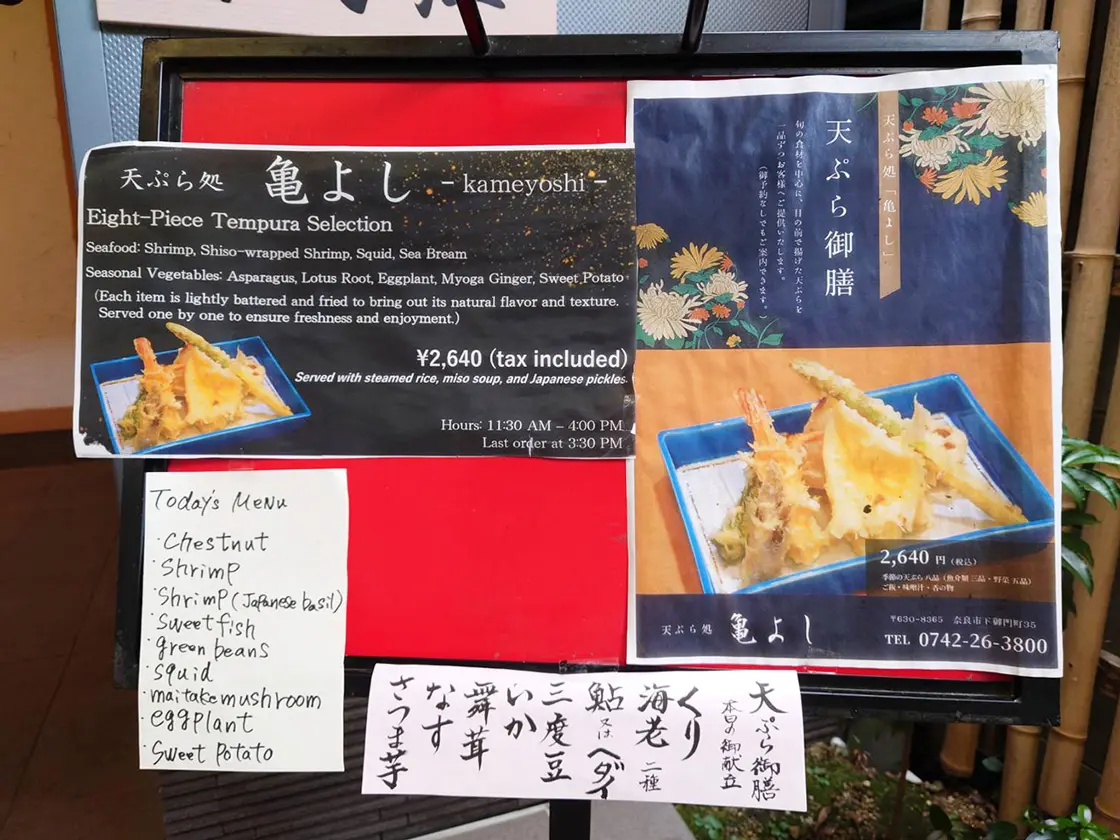 天ぷら処 亀よし - kameyoshi -
Eight-Piece Tempura Selection
Seafood: Shrimp, Shiso-wrapped Shrimp, Squid, Sea Bream
Seasonal Vegetables: Asparagus, Lotus Root, Eggplant, Myoga Ginger, Sweet Potato
(Each item is lightly battered and fried to bring out its natural flavor and texture.
Served one by one to ensure freshness and enjoyment.)
¥2,640 (tax included)
Served with steamed rice, miso soup, and Japanese pickles.
Hours: 11:30 AM – 4:00 PM
Last order at 3:30 PM
天ぷら処「亀よし」
天ぷら御膳
旬の食材を中心に、目の前で揚げた天ぷらを
一品ずつお客様へご提供いたします。
(御予約なしでもご案内できます。)
2,640 円 (税込)
季節の天ぷら 八品 (魚介類 三品・野菜 五品)
ご飯・味噌汁・香の物
天ぷら処 亀よし
〒630-8365 奈良市下御門町35
TEL 0742-26-3800
Today's Menu
・Chestnut
・Shrimp
・Shrimp (Japanese basil)
・Sweet fish
・green beans
・squid
・maitake mushroom
・eggplant
・Sweet Potato
天ぷら御膳
本日の御献立
くり
海老 二種
鮎 又は ヘダイ
三度豆
いか
舞茸
なす
さつま芋